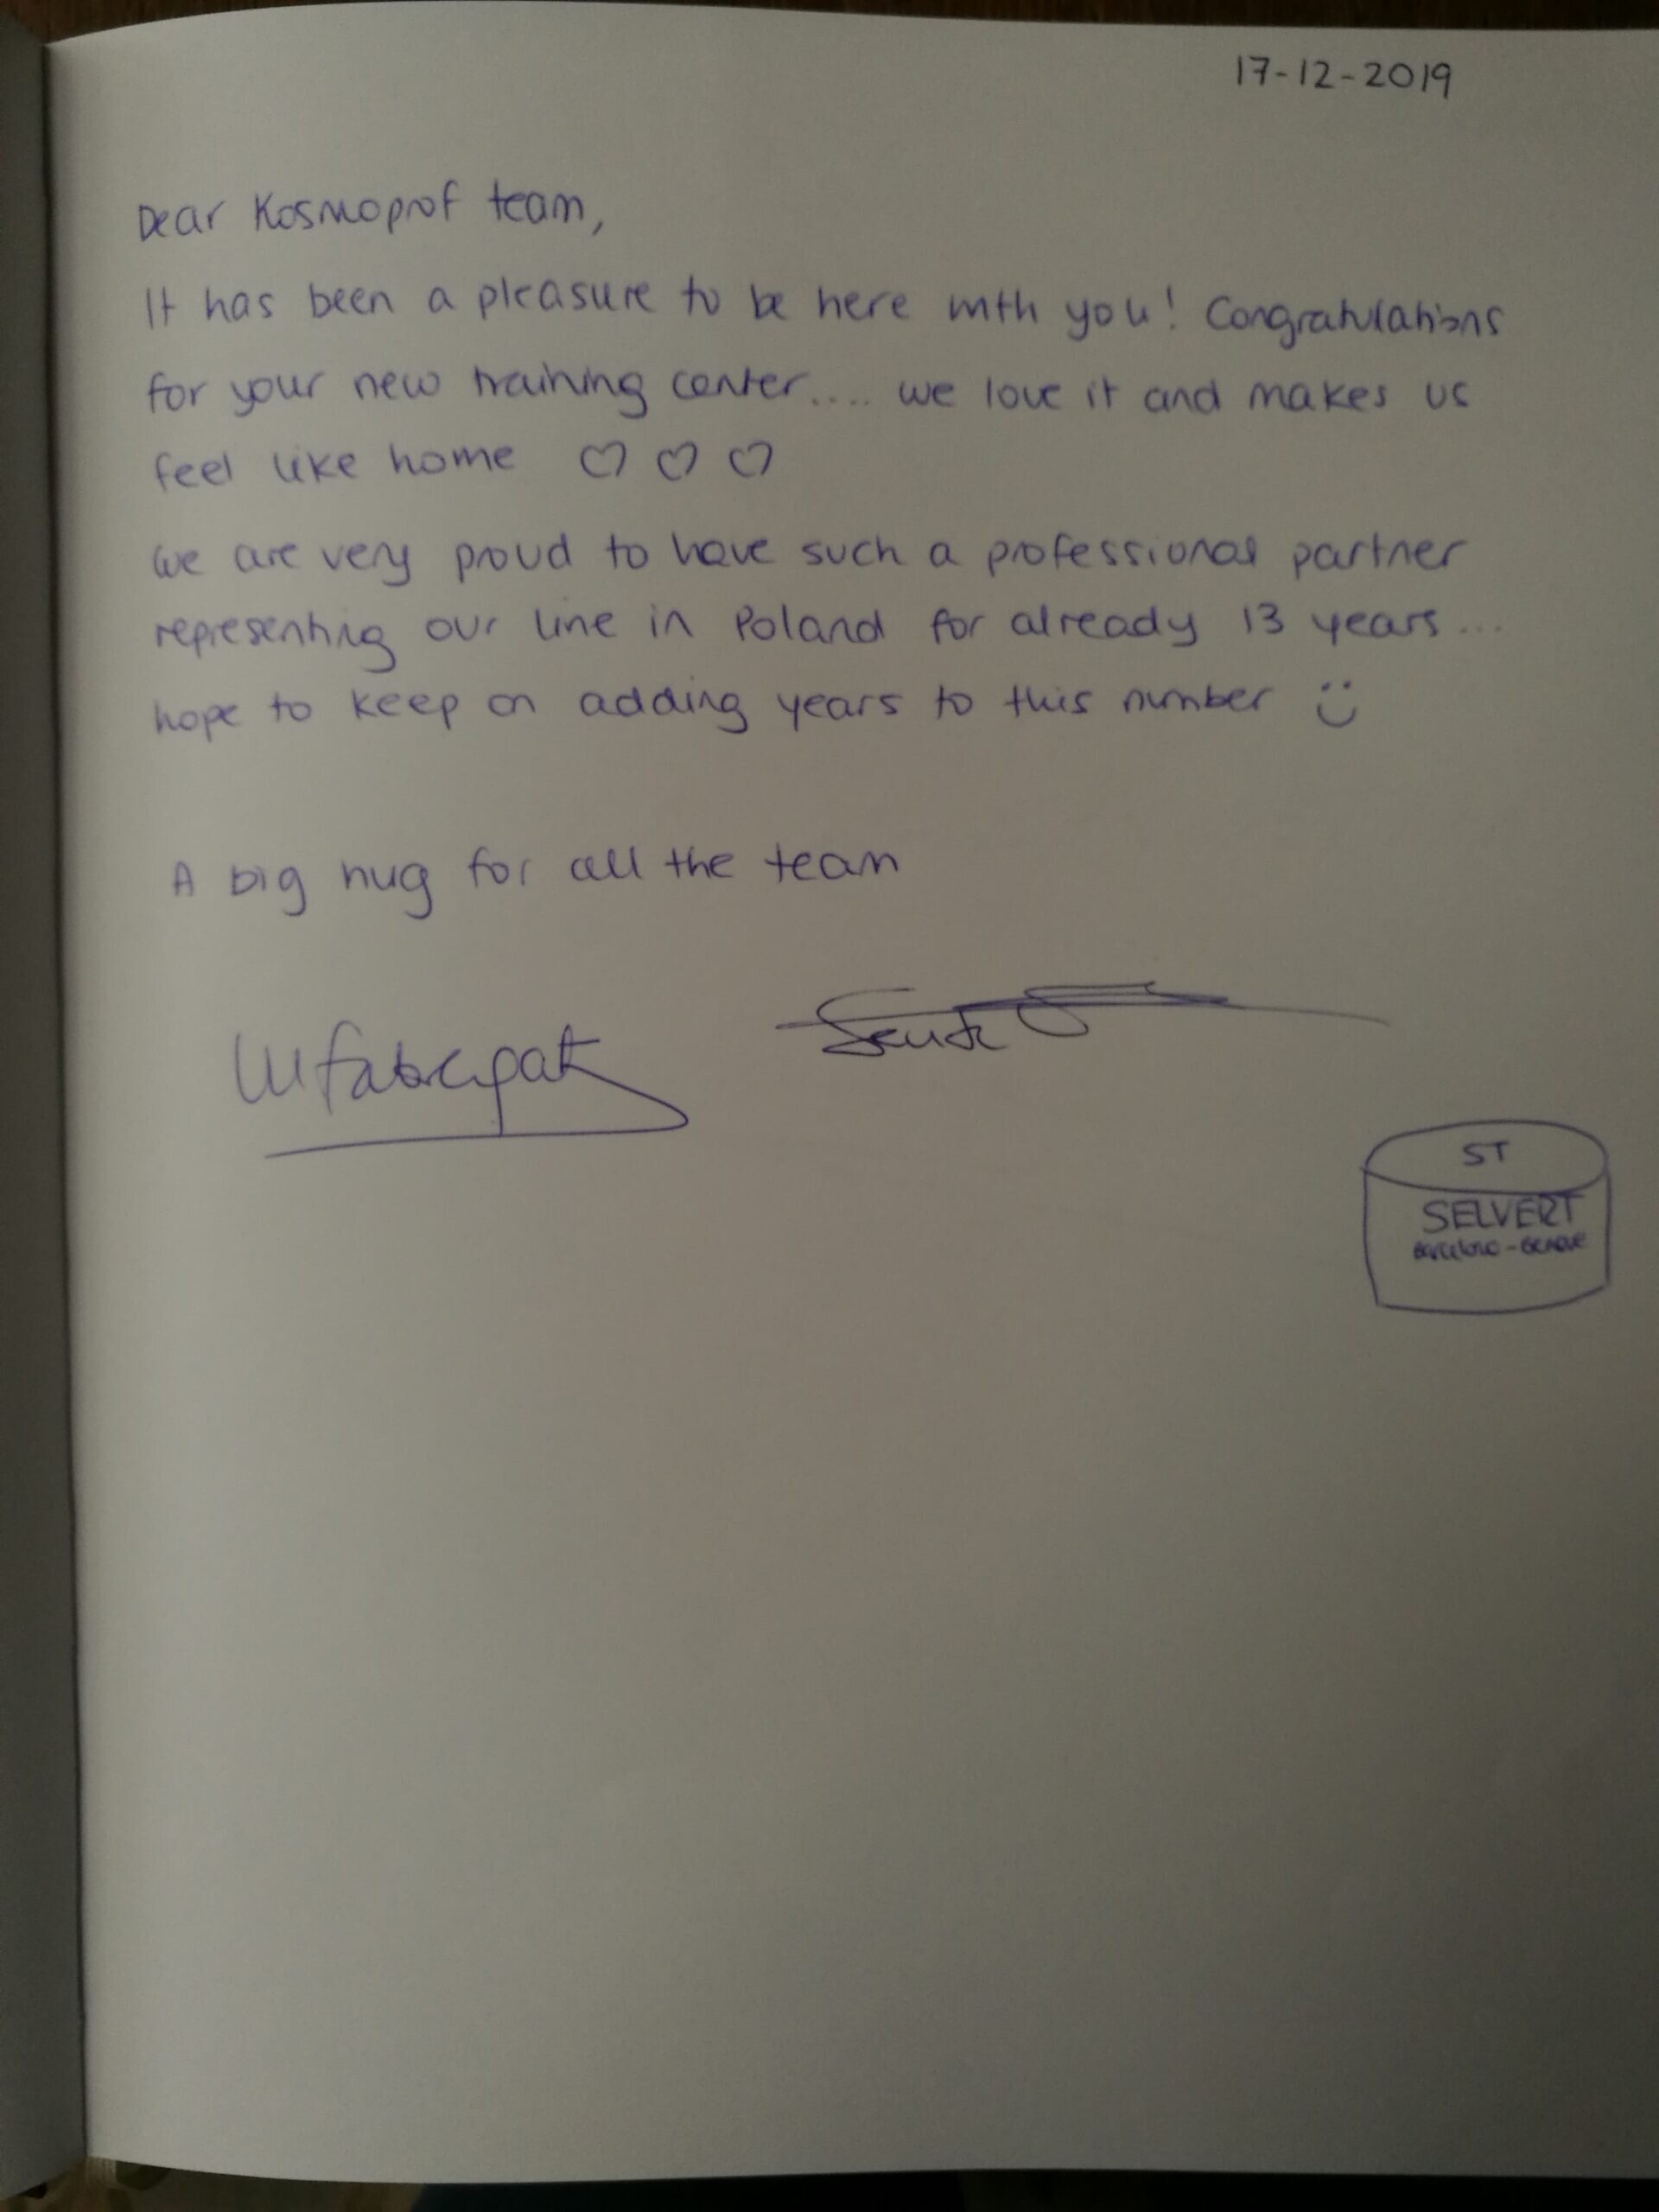 17-12-2019
Dear Kosmoprof team,
It has been a pleasure to be here with you! Congratulations
for your new training center.... we love it and makes us
feel like home ♡ ♡ ♡
We are very proud to have such a professional partner
representing our line in Poland for already 13 years...
hope to keep on adding years to this number :)
A big hug for all the team
ST
SELVERT
Barcelona - Genève